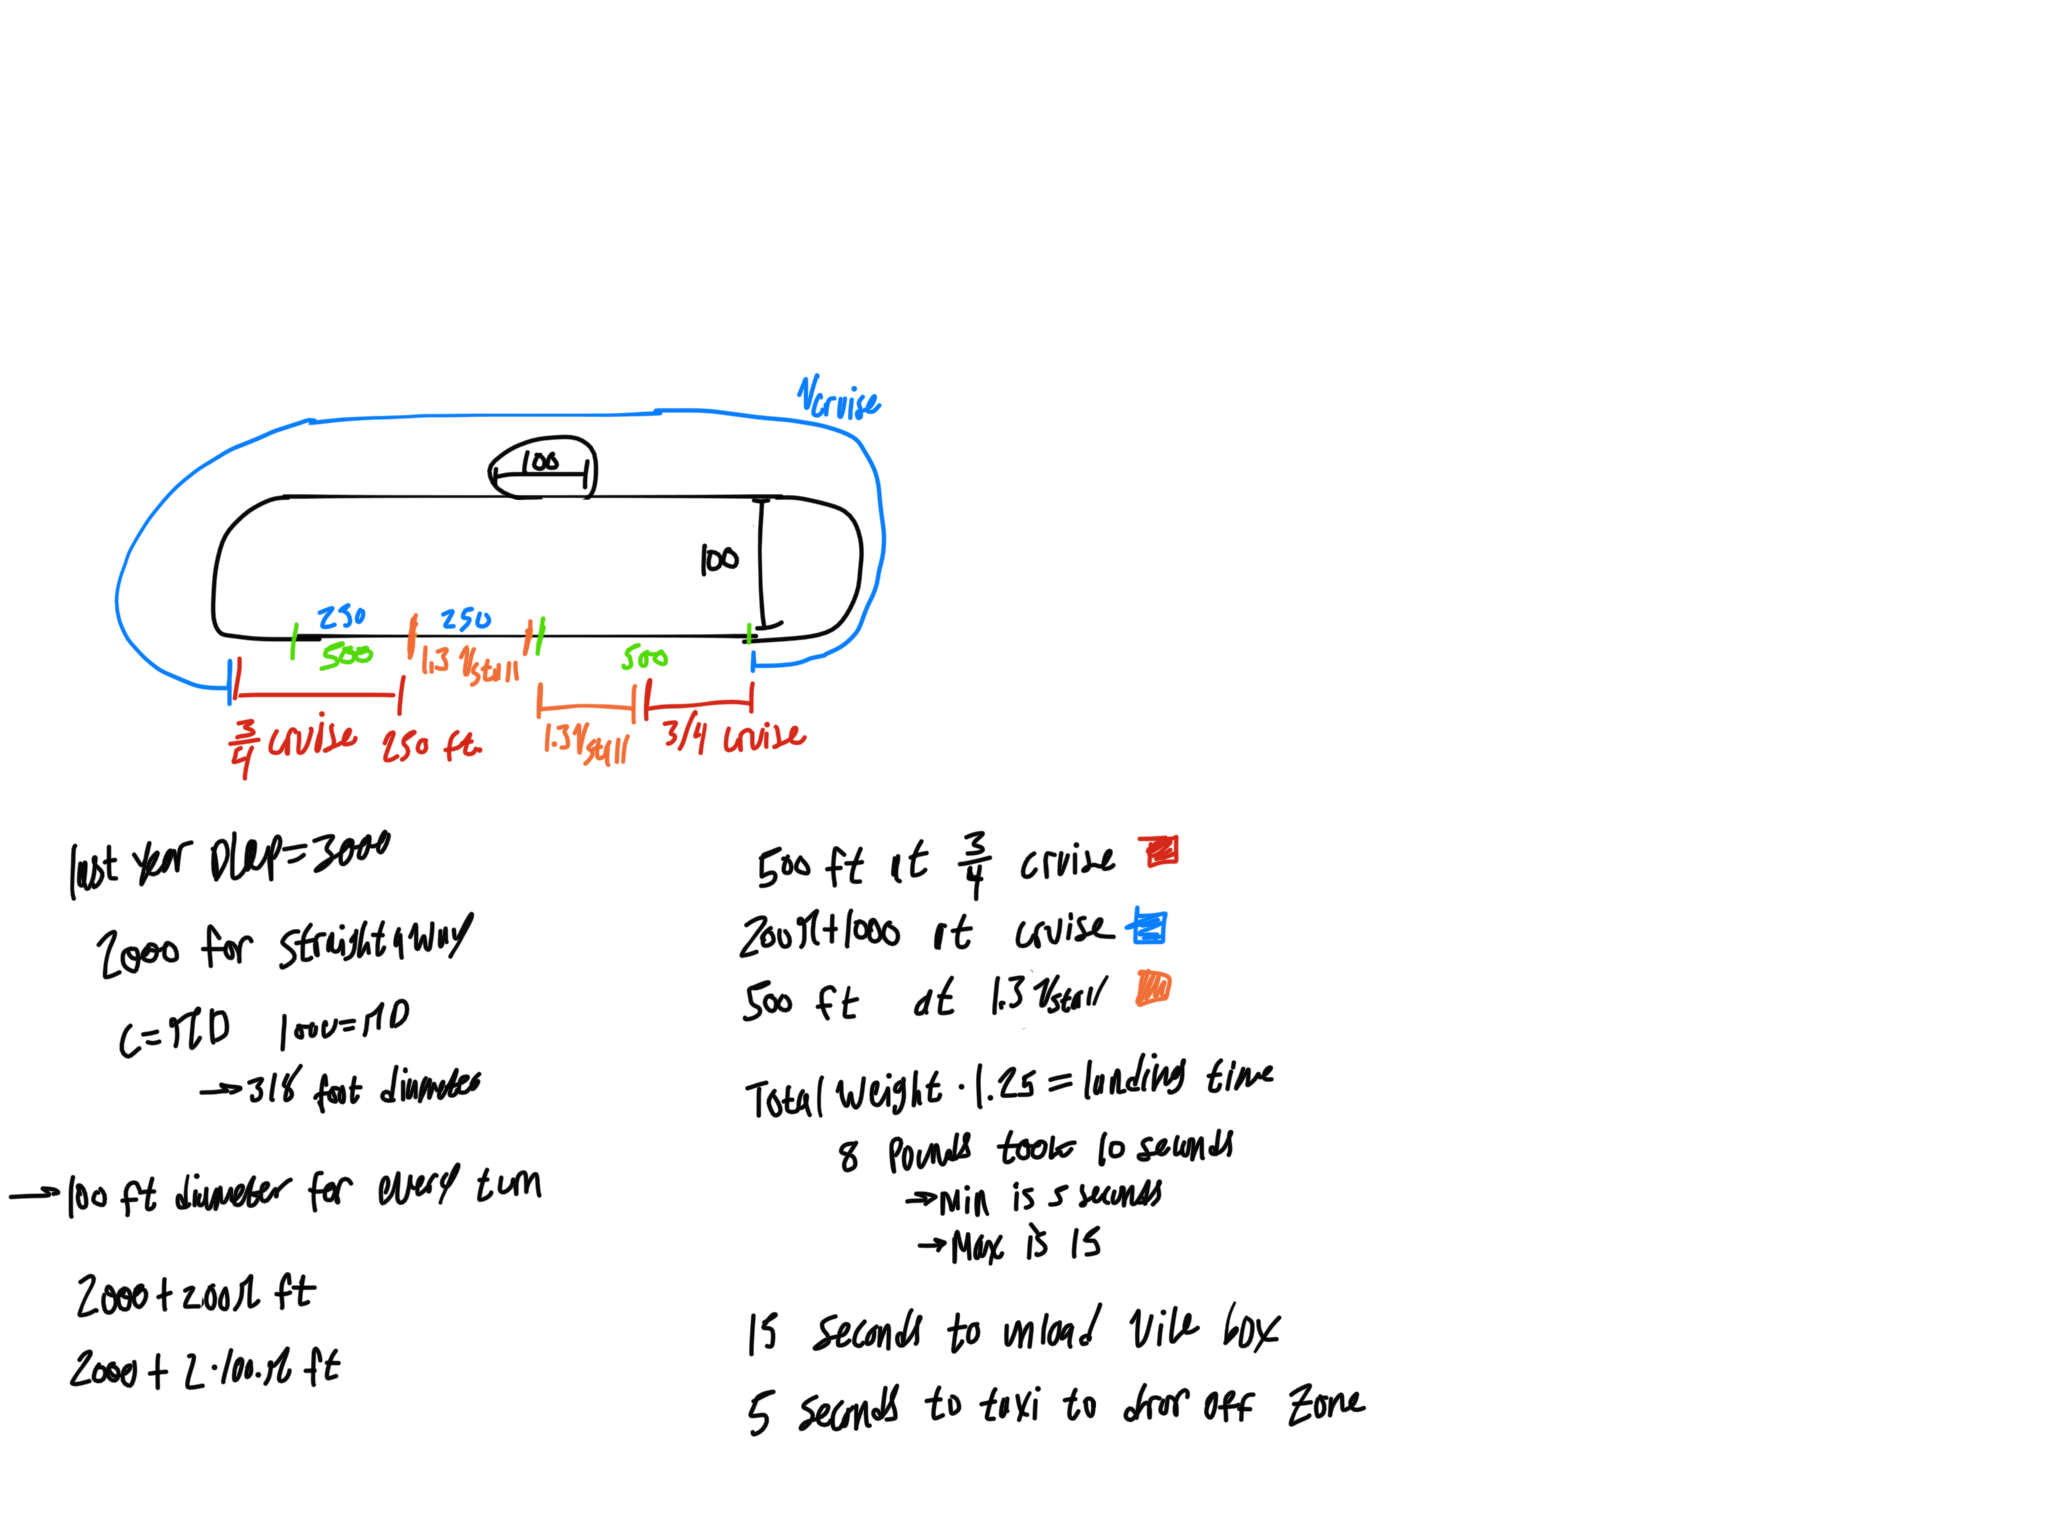 Vcruise
100
100
250 250
500 1.3 Vstall 500
3/4 cruise 250 ft. 1.3 Vstall 3/4 cruise
last year Dlap=3000
2000 for straightaway
C=πD 1000=πD
→318 foot diameter
→100 ft diameter for every turn
2000+200π ft
2000+2·100·π ft
500 ft at 3/4 cruise
200π+1000 at cruise
500 ft at 1.3 Vstall
Total Weight · 1.25 = landing time
8 Pounds took 10 seconds
→Min is 5 seconds
→Max is 15
15 seconds to unload Vile box
5 seconds to taxi to drop off Zone